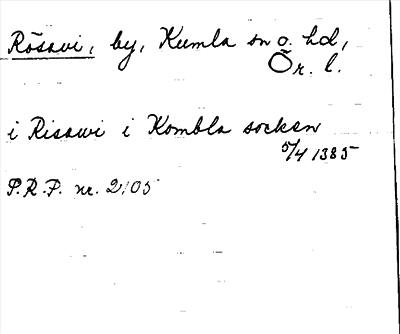 Rösavi, by, Kumla sn o. hd,
Ör. l.
i Risawi i Kombla socken
5/4 1385
P.R.P. nr. 2105